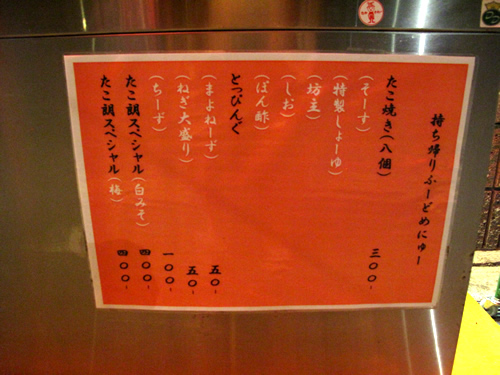 持ち帰りふーどめにゅー
たこ焼き(八個) 三〇〇-
(そーす)
(特製しょーゆ)
(坊主)
(しお)
(ぽん酢)
とっぴんぐ
(まよねーず) 五〇-
(ねぎ大盛り) 五〇-
(ちーず) 一〇〇-
たこ朗スペシャル(白みそ) 四〇〇-
たこ朗スペシャル(梅) 四〇〇-